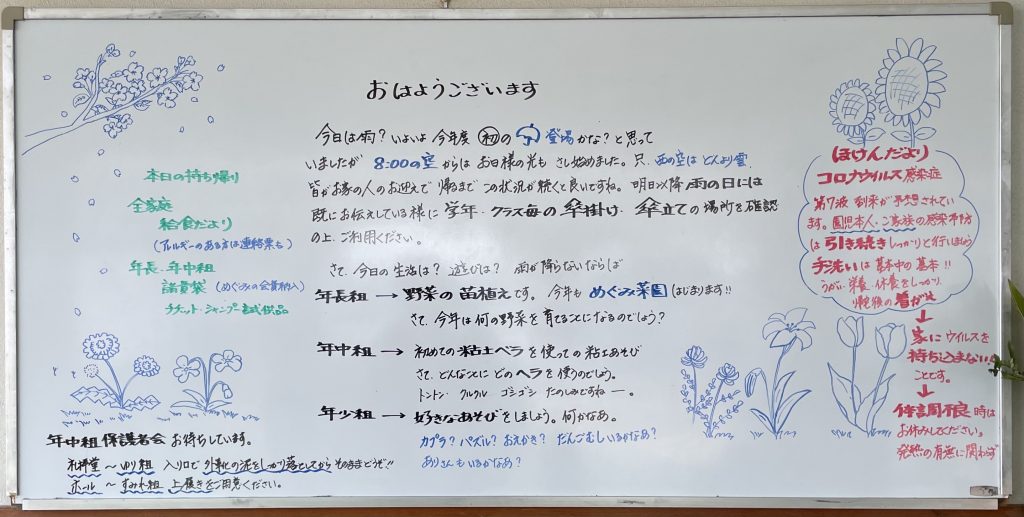 おはようございます
今日は雨？いよいよ 今年度 初の 登場かな？と思って
いましたが 8:00の空からは お日様の光も さし始めました。只、西の空は どんより雲
皆がお家の人のお迎えで 帰るまで この状況が続くと良いですね。明日以降 雨の日には
既にお伝えしている様に 学年・クラス毎の 傘掛け・傘立ての場所を確認
の上、ご利用ください。
さて、今日の生活は？ 遊びは？ 雨が降らないならば
年長組 → 野菜の苗植えです。今年も めぐみ菜園 はじまります!!
さて、今年は何の野菜を育てることになるのでしょう？
年中組 → 初めての粘土ベラを使っての粘土あそび
さて、どんなことに どのヘラを使うのでしょう。
トントン クルクル ゴシゴシ たのしみですねー。
年少組 → 好きなあそびをしましょう。何かなあ。
カプラ？パズル？おえかき？だんごむしいるかなあ？
ありさんもいるかなあ？
本日の持ち帰り
全家庭
給食だより
(アレルギーのある方は連絡票も)
年長・年中組
諸費袋 (めぐみの会費納入)
チケット・シャンプー試供品
年中組 保護者会 お待ちしています。
礼拝堂 〜 ゆり組 入り口で 外靴の泥をしっかり落としてから そのままどうぞ!!
ホール 〜 すみれ組 上履きをご用意ください。
ほけんだより
コロナウイルス感染症
第7波 到来が予想されてい
ます。園児本人、ご家族の感染予防
は 引き続き しっかりと行いましょう
手洗いは 基本中の基本!!
うがい・栄養・休養をしっかり
帰宅後の着がえ
↓
家に ウイルスを
持ち込まない
ことです。
↓
体調不良 時は
お休みしてください。
発熱の有無に関わず